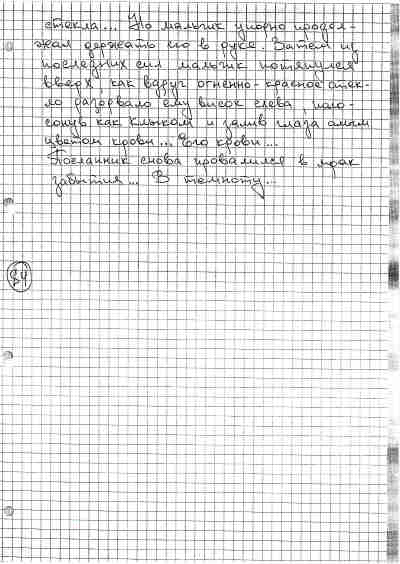 стекла... Но мальчик упорно продол-
жал держать его в руке. Затем из
последних сил мальчик потянулся
вверх, как вдруг огненно-красное стек-
ло разорвало ему висок слева, поло-
снув как клыком и залив глаза алым
цветом крови... Его крови...
Посланник снова провалился в мрак
забытия... В темноту...
84